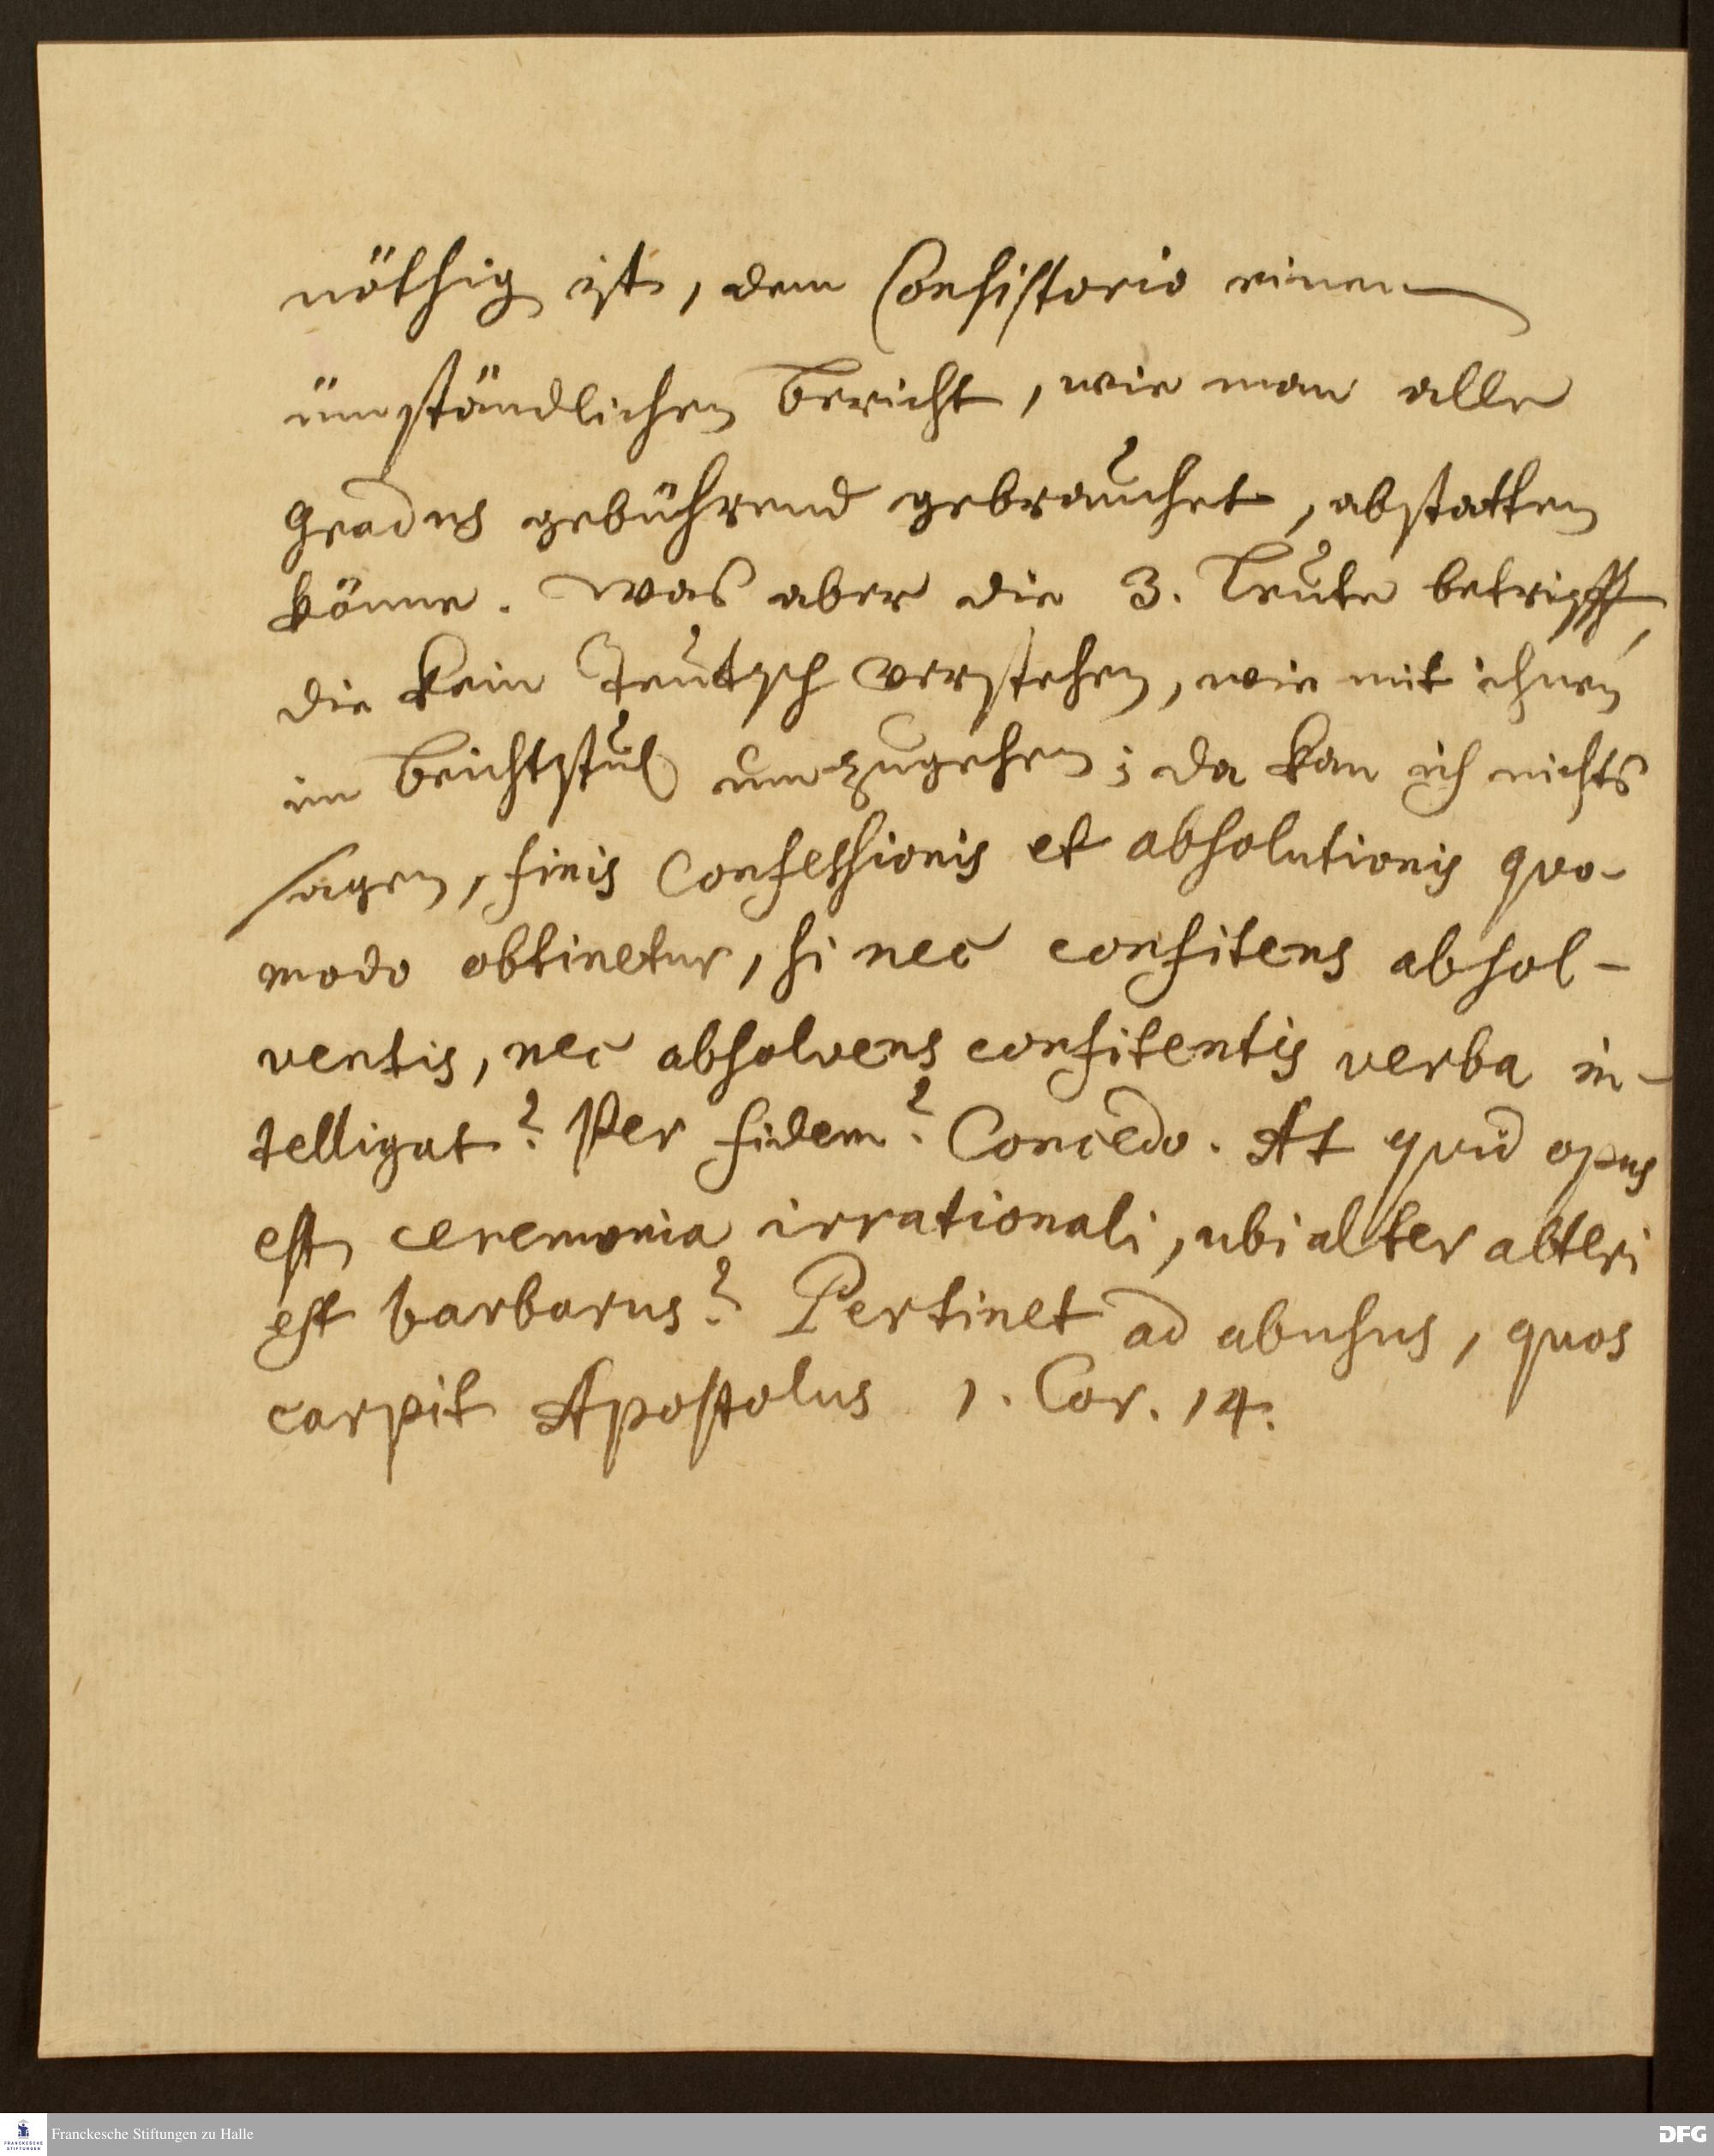 nöthig ist, dem Consistorio einen
ümständlichen bericht, wie man alle
Gradus gebührend gebrauchet, abstatten
könne. Was aber die 3. Leute betrifft,
die kein Teutsch verstehen, wie mit ihnen
im beichtstul umzugehen; da kan ich nichts
sagen, finis Confessionis et absolutionis quo-
modo obtinetur, si nec confitens absol-
ventis, nec absolvens confitentis verba in-
telligat? Per fidem? Concedo. At quid opus
est ceremonia irrationali, ubi alter alteri
est barbarus? Pertinet ad abusus, quos
carpit Apostolus 1. Cor. 14.
Franckesche Stiftungen zu Halle
FRANCKESCHE STIFTUNGEN
DFG